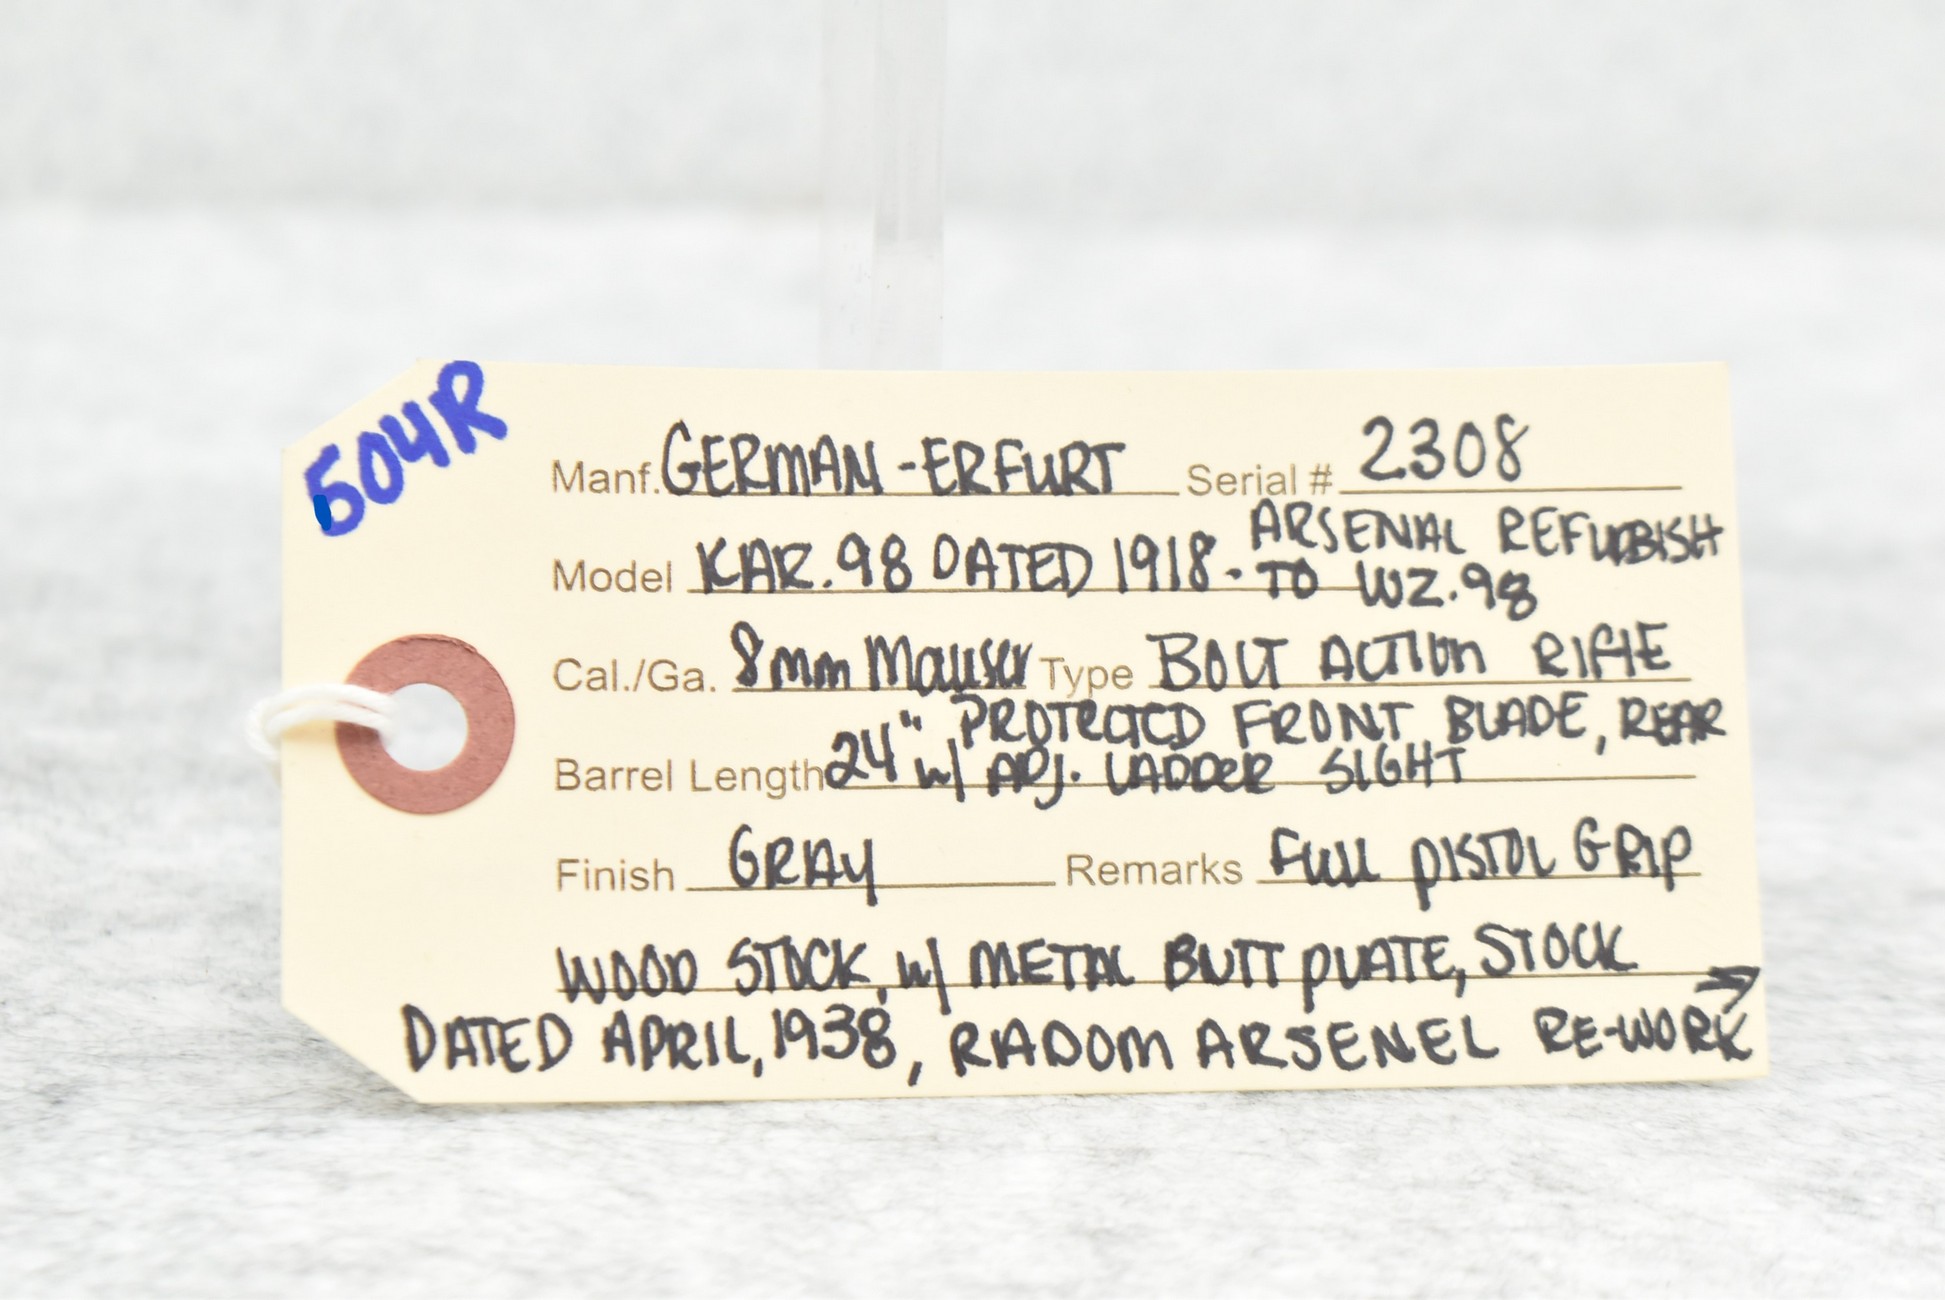 504R
Manf. GERMAN-ERFURT Serial # 2308
Model KAR.98 DATED 1918 - ARSENAL REFURBISH
TO WZ.98
Cal./Ga. 8mm Mauser Type BOLT ACTION RIFLE
Barrel Length 24" PROTECTED FRONT BLADE, REAR
w/ ADJ. LADDER SIGHT
Finish GRAY Remarks Full PISTOL GRIP
WOOD STOCK, w/ METAL BUTT PLATE, STOCK →
DATED APRIL, 1938, RADOM ARSENEL RE-WORK